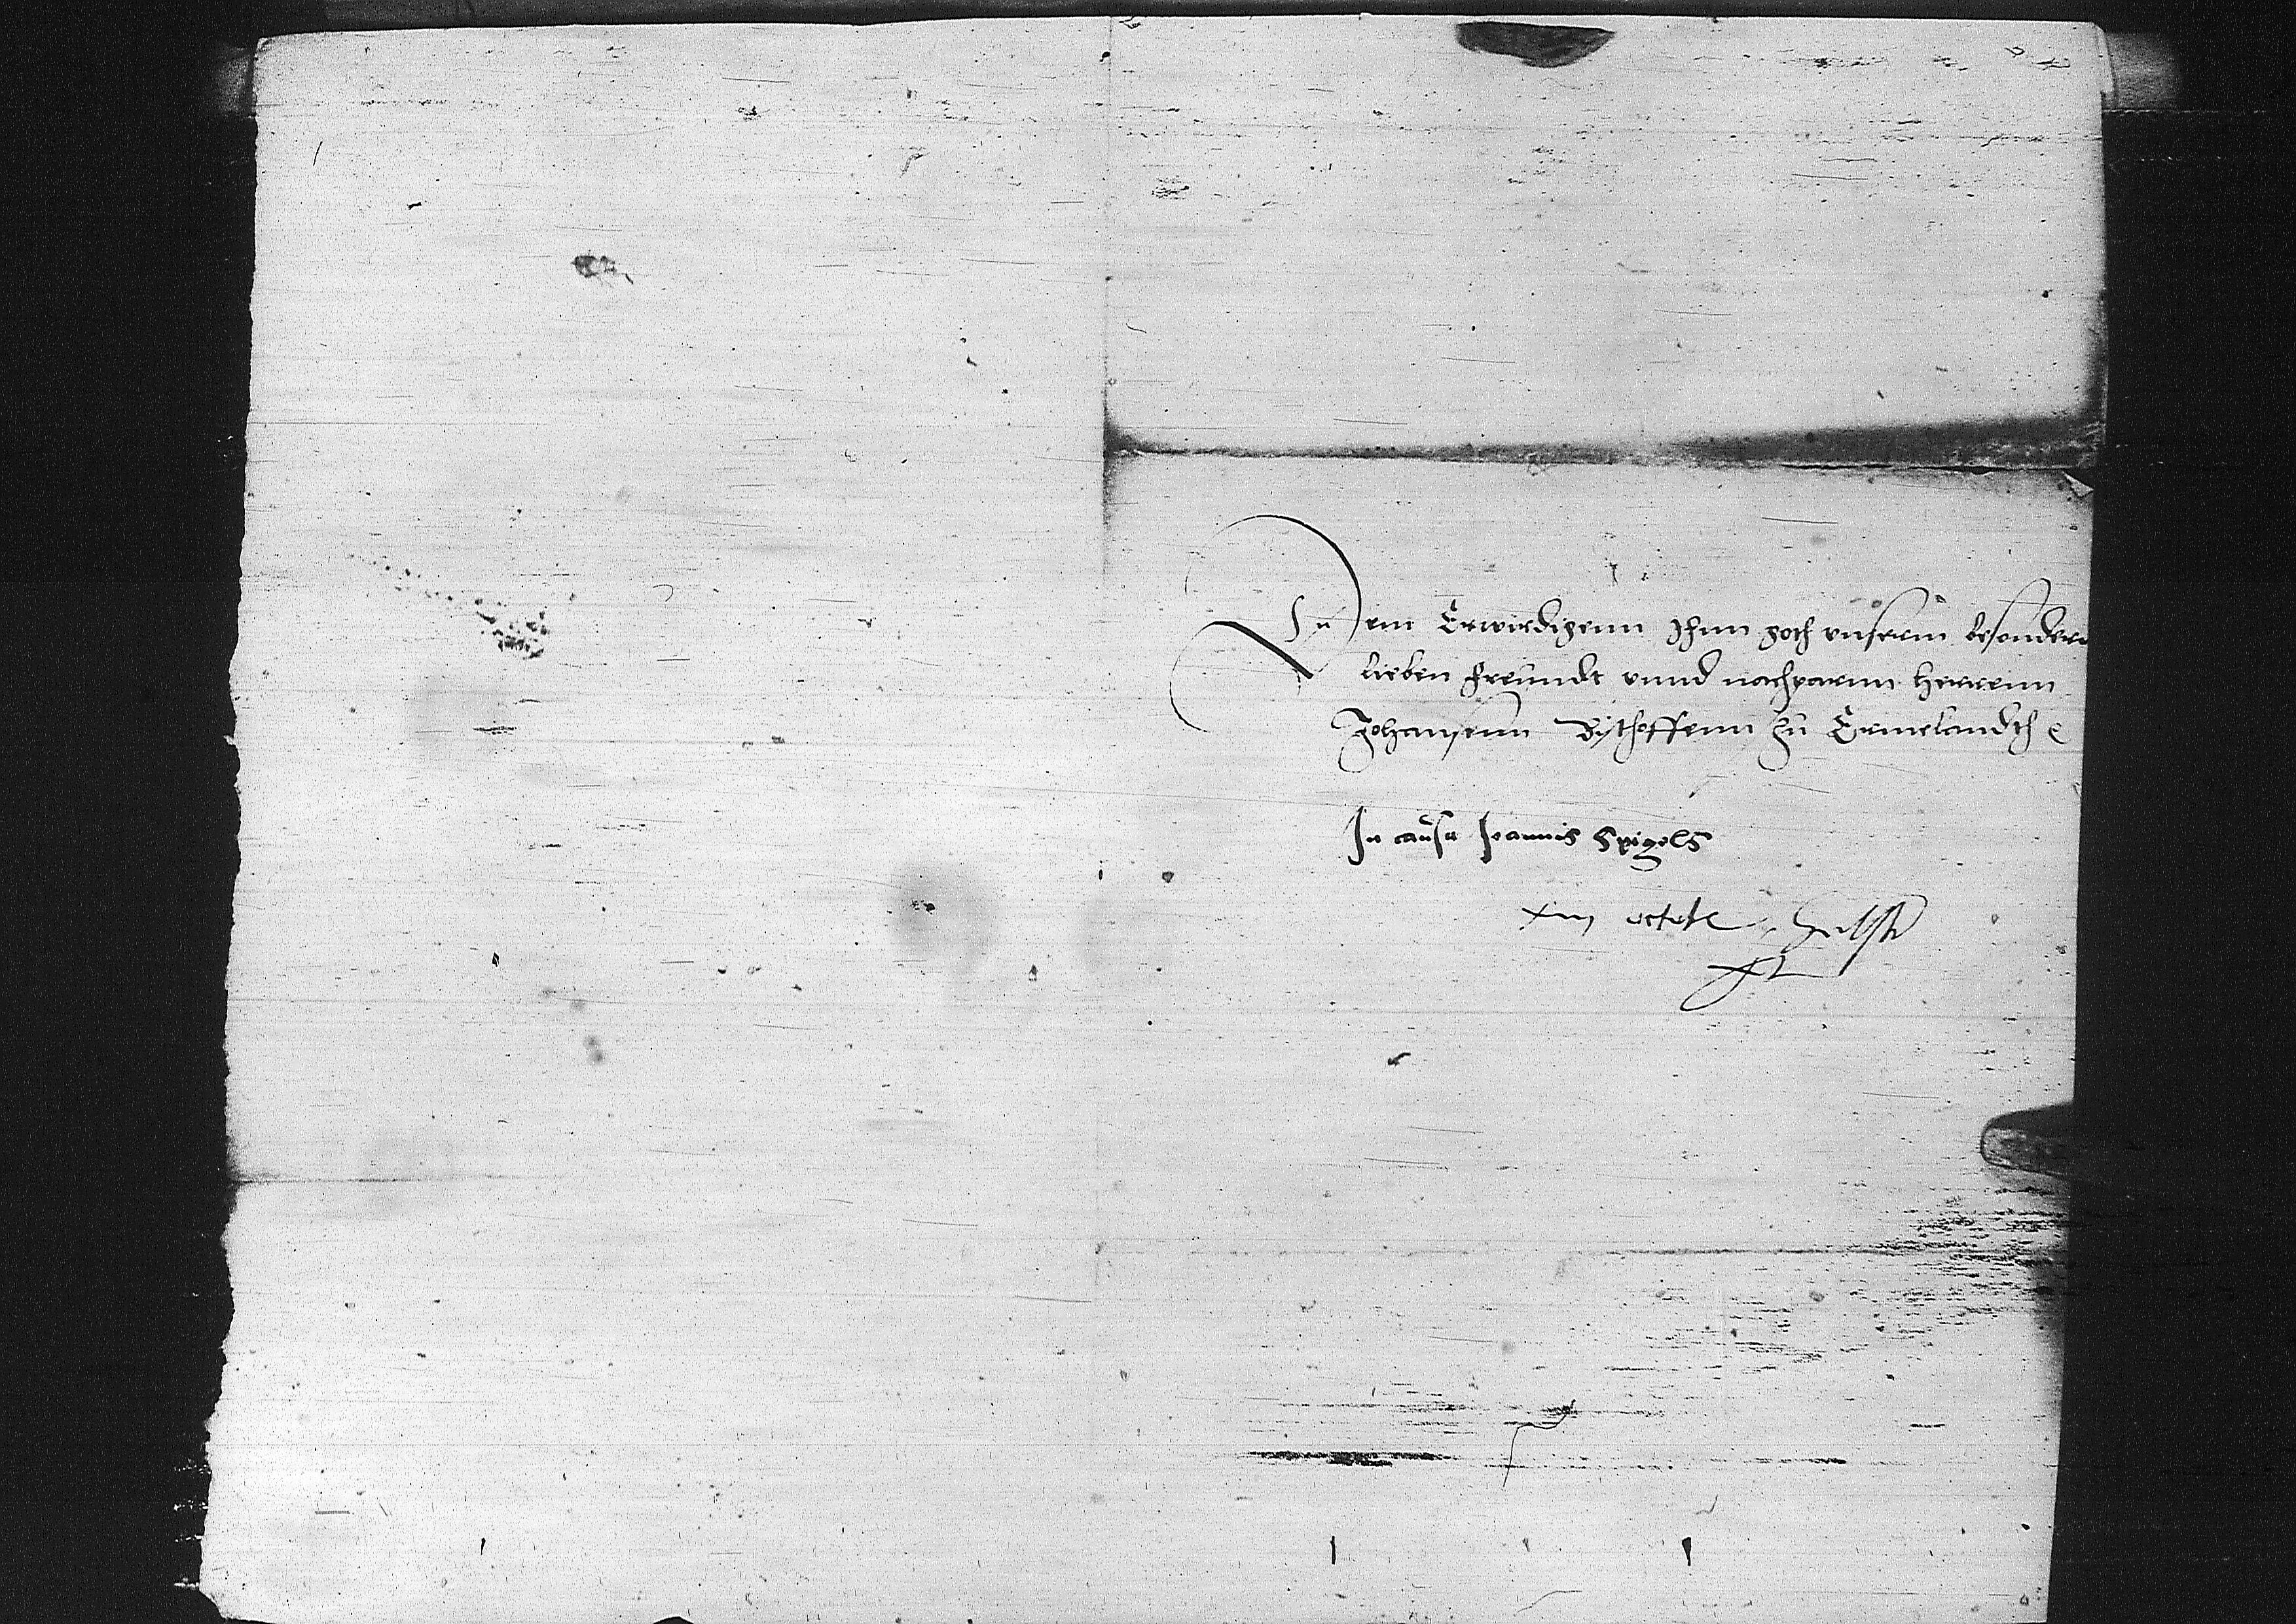 Dem Erwirdigenn Inn goth unserm besondern
lieben freundt unnd nachparnn Herrenn
Johansenn Bischoffenn zu Ermelandth
In causa Ioannis Spigels
xiii octob